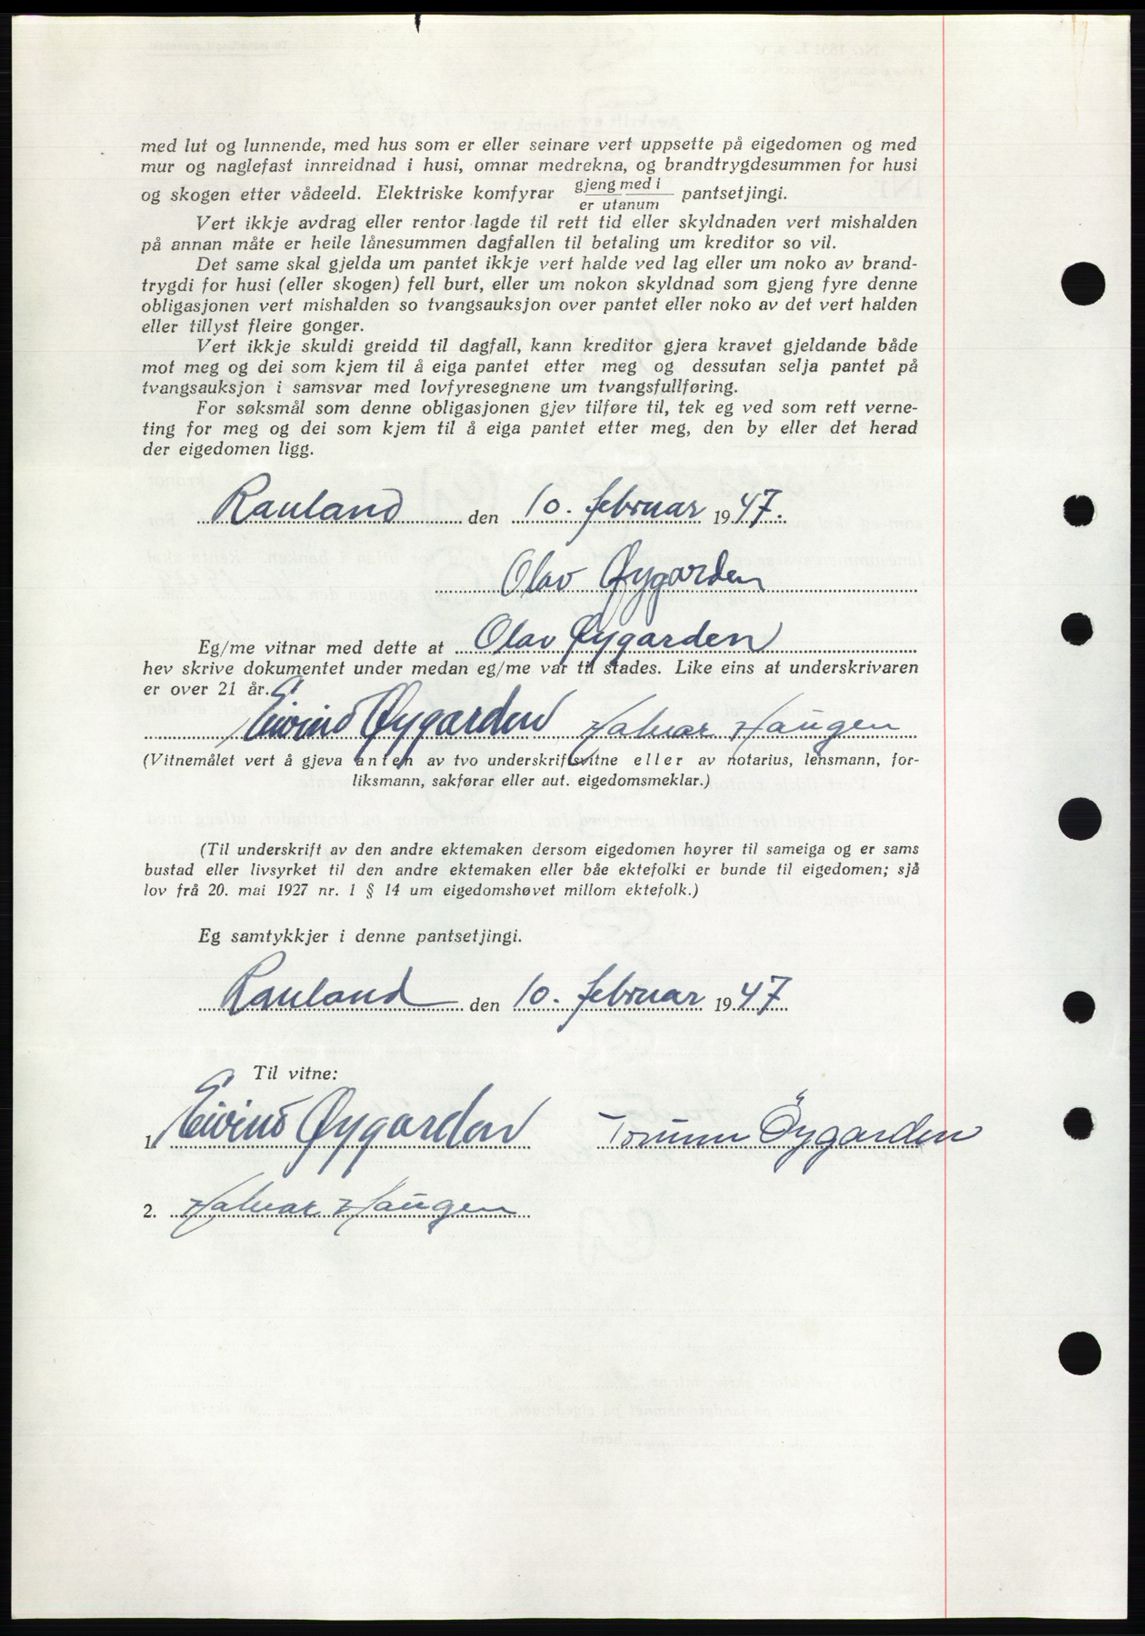 med lut og lunnende, med hus som er eller seinare vert uppsette på eigedomen og med
mur og naglefast innreidnad i husi, omnar medrekna, og brandtrygdesummen for husi
og skogen etter vådeeld. Elektriske komfyrar gjeng med i / er utanum pantsetjingi.
Vert ikkje avdrag eller rentor lagde til rett tid eller skyldnaden vert mishalden
på annan måte er heile lånesummen dagfallen til betaling um kreditor so vil.
Det same skal gjelda um pantet ikkje vert halde ved lag eller um noko av brand-
trygdi for husi (eller skogen) fell burt, eller um nokon skyldnad som gjeng fyre denne
obligasjonen vert mishalden so tvangsauksjon over pantet eller noko av det vert halden
eller tillyst fleire gonger.
Vert ikkje skuldi greidd til dagfall, kann kreditor gjera kravet gjeldande både
mot meg og dei som kjem til å eiga pantet etter meg og dessutan selja pantet på
tvangsauksjon i samsvar med lovfyresegnene um tvangsfullføring.
For søksmål som denne obligasjonen gjev tilføre til, tek eg ved som rett verne-
ting for meg og dei som kjem til å eiga pantet etter meg, den by eller det herad
der eigedomen ligg.
Rauland den 10. februar 1947.
Olav Øygarden
Eg/me vitnar med dette at Olav Øygarden
hev skrive dokumentet under medan eg/me var til stades. Like eins at underskrivaren
er over 21 år.
Eivind Øygarden Halvar Haugen
(Vitnemålet vert å gjeva anten av tvo underskriftsvitne eller av notarius, lensmann, for-
liksmann, sakførar eller aut. eigedomsmeklar.)
(Til underskrift av den andre ektemaken dersom eigedomen høyrer til sameiga og er sams
bustad eller livsyrket til den andre ektemaken eller båe ektefolki er bunde til eigedomen; sjå
lov frå 20. mai 1927 nr. 1 § 14 um eigedomshøvet millom ektefolk.)
Eg samtykkjer i denne pantsetjingi.
Rauland den 10. februar 1947
Til vitne:
1. Eivind Øygarden Torunn Øygarden
2. Halvar Haugen